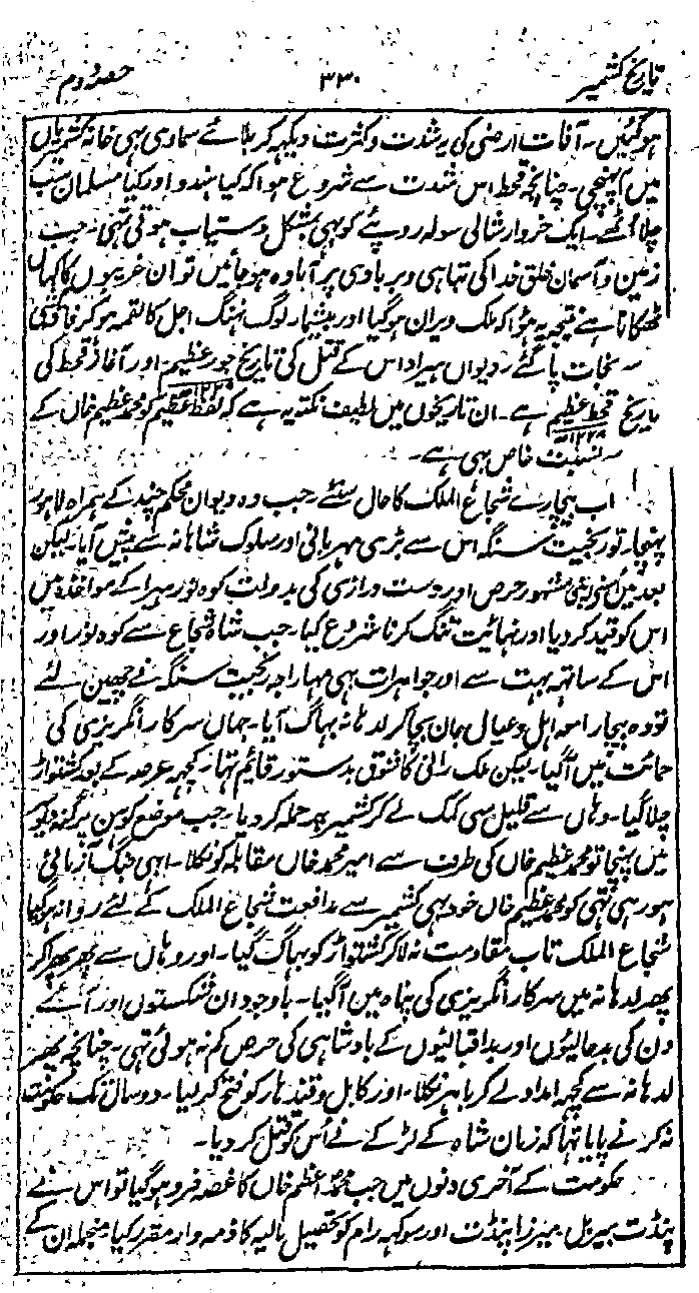 تاریخ کشمیر ۳۳۰ حصہ دوم
ہوگئیں۔ آفات ارضی کی یہ شدت وکثرت دیکہہ کر بلائے سماوی بہی خانہ کشمیریاں
میں آپہنچی۔ چنانچہ قحط اس شدت سے شروع ہوا کہ کیا ہندو اور کیا مسلمان سب
چلا اٹھے۔ ایک خروار شالی سولہ روپئے کو بہی بمشکل دستیاب ہوتی تہی۔ جب
زمین وآسمان خلق خدا کی تباہی وبربادی پر آمادہ ہوجائیں تو ان غریبوں کا کہاں
ٹھکانا ہے نتیجہ یہ ہوا کہ ملک ویران ہوگیا اور بیشمار لوگ نہنگ اجل کا لقمہ ہوکر فاقہ کشی
سے نجات پاگئے۔ دیوان ہیراداس کے قتل کی تاریخ جور عظیم۔ اور آغاز قحط کی
تاریخ قحط عظیم ہے۔ ان تاریخوں میں لطیف نکتہ یہ ہے کہ لفظ عظیم کو محمد عظیم خاں کے
۱۲۲۸
سے نسبت خاص بہی ہے۔
اب بیچارے شجاع الملک کا حال سنئے۔ جب وہ دیوان محکم چند کے ہمراہ لاہور
پہنچا۔ تو رنجیت سنگہ اس سے بڑی مہربانی اور سلوک شاہانہ سے پیش آیا۔ لیکن
بعد میں اپنی مشہور حرص اور دست درازی کی بدولت کوہ نور ہیرا کے مواخذہ میں
اس کو قید کردیا اور نہائیت تنگ کرنا شروع کیا۔ جب شاہ شجاع سے کوہ نور اور
اس کے ساتہہ بہت سے اور جواہرات بہی مہاراجہ رنجیت سنگہ نے چھین لئے
تو وہ بیچارا معہ اہل وعیال جان بچاکر لدہانہ بہاگ آیا۔ جہاں سرکار انگریزی کی
حمائت میں آگیا۔ لیکن ملک رانی کا شوق بدستور قائم تہا۔ کچہہ عرصہ کے بعد کشتواڑ
چلا گیا۔ وہاں سے قلیل سی کمک لے کر کشمیر پر حملہ کردیا۔ جب موضع کوہن پرگنہ دیوہ
میں پہنچا تو محمد عظیم خاں کی طرف سے امیر محمد خاں مقابلہ کو نکلا۔ ابہی جنگ آزمائی
ہورہی تہی کہ محمد عظیم خاں خود بہی کشمیر سے مدافعت شجاع الملک کے لئے روانہ ہوگیا
شجاع الملک تاب مقاومت نہ لاکر کشتواڑ کو بہاگ گیا۔ اور وہاں سے پھر پھراکر
پھر لدہانہ میں سرکار انگریزی کی پناہ میں آگیا۔ باوجود ان شکستوں اور آئے
دن کی بدحالیوں اور بداقبالیوں کے بادشاہی کی حرص کم نہ ہوئی تہی۔ چنانچہ پھر
لدہانہ سے کچہہ امداد لے کر باہر نکلا۔ اور کابل وقندہار کو فتح کرلیا۔ دو سال تک حکومت
نہ کرنے پایا تہا کہ زمان شاہ کے لڑکے نے اُس کو قتل کردیا۔
حکومت کے آخری دنوں میں جب محمد اعظم خاں کا غصہ فرو ہوگیا تو اس نے
پنڈت بیربل۔ میرزا پنڈت اور سوکہہ رام کو تحصیل مالیہ کا ذمہ وار مقرر کیا۔ منجملہ ان کے